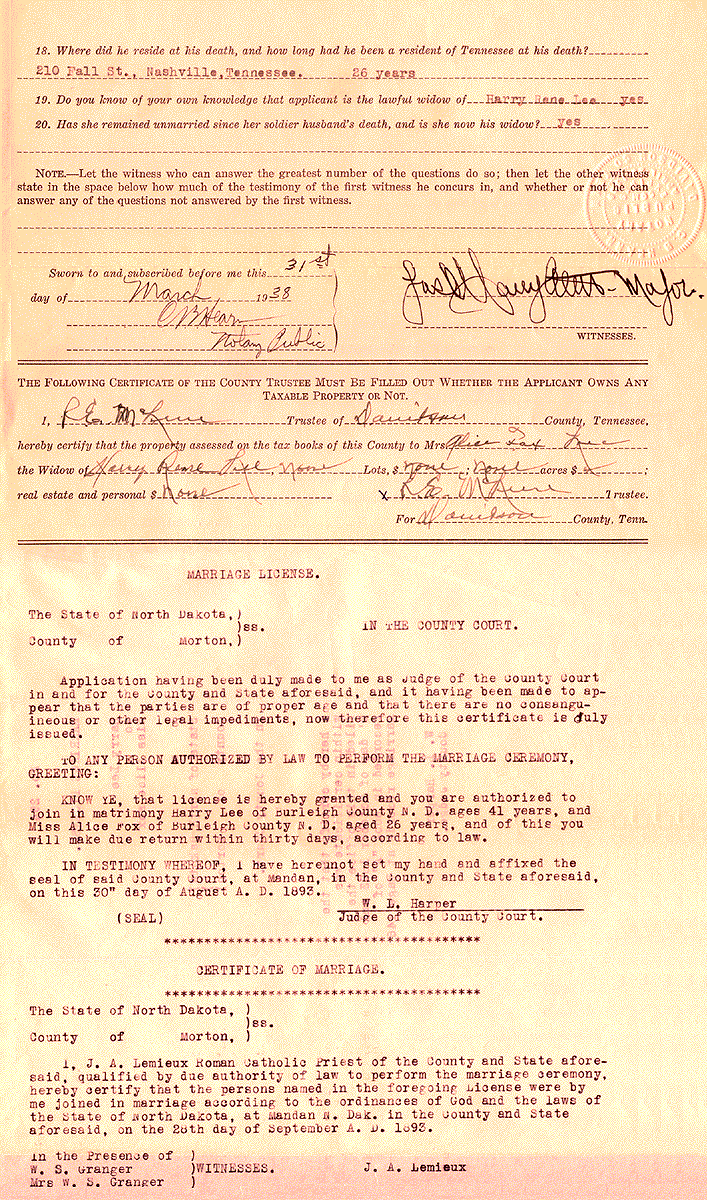 18. Where did he reside at his death, and how long had he been a resident of Tennessee at his death?
210 Fall St., Nashville, Tennessee. 26 years
19. Do you know of your own knowledge that applicant is the lawful widow of Harry Rene Lee yes
20. Has she remained unmarried since her soldier husband's death, and is she now his widow? yes
NOTE.—Let the witness who can answer the greatest number of the questions do so; then let the other witness
state in the space below how much of the testimony of the first witness he concurs in, and whether or not he can
answer any of the questions not answered by the first witness.
Sworn to and subscribed before me this 31st
day of March, 1938
Major.
Notary Public
WITNESSES.
THE FOLLOWING CERTIFICATE OF THE COUNTY TRUSTEE MUST BE FILLED OUT WHETHER THE APPLICANT OWNS ANY
TAXABLE PROPERTY OR NOT.
I, R.E. Trustee of Davidson County, Tennessee,
hereby certify that the property assessed on the tax books of this County to Mrs. Alice Fox Lee
the Widow of Harry Rene Lee, none Lots, $ none, none acres $ ;
real estate and personal $ none R.E. Trustee.
For Davidson County, Tenn.
MARRIAGE LICENSE.
The State of North Dakota,)
)ss. IN THE COUNTY COURT.
County of Morton,)
Application having been duly made to me as Judge of the County Court
in and for the County and State aforesaid, and it having been made to ap-
pear that the parties are of proper age and that there are no consangu-
ineous or other legal impediments, now therefore this certificate is duly
issued.
TO ANY PERSON AUTHORIZED BY LAW TO PERFORM THE MARRIAGE CEREMONY,
GREETING:
KNOW YE, that license is hereby granted and you are authorized to
join in matrimony Harry Lee of Burleigh County N. D. ages 41 years, and
Miss Alice Fox of Burleigh County N. D. aged 26 years, and of this you
will make due return within thirty days, according to law.
IN TESTIMONY WHEREOF, I have hereunot set my hand and affixed the
seal of said County Court, at Mandan, in the County and State aforesaid,
on this 30" day of August A. D. 1893.
W. L. Harper
(SEAL) Judge of the County Court.
****************************************
CERTIFICATE OF MARRIAGE.
****************************************
The State of North Dakota, )
)ss.
County of Morton, )
I, J. A. Lemieux Roman Catholic Priest of the County and State afore-
said, qualified by due authority of law to perform the marriage ceremony,
hereby certify that the persons named in the foregoing License were by
me joined in marriage according to the ordinances of God and the laws of
the State of North Dakota, at Mandan N. Dak. in the County and State
aforesaid, on the 28th day of September A. D. 1893.
In the Presence of )
W. S. Granger )WITNESSES. J. A. Lemieux
Mrs W. S. Granger )